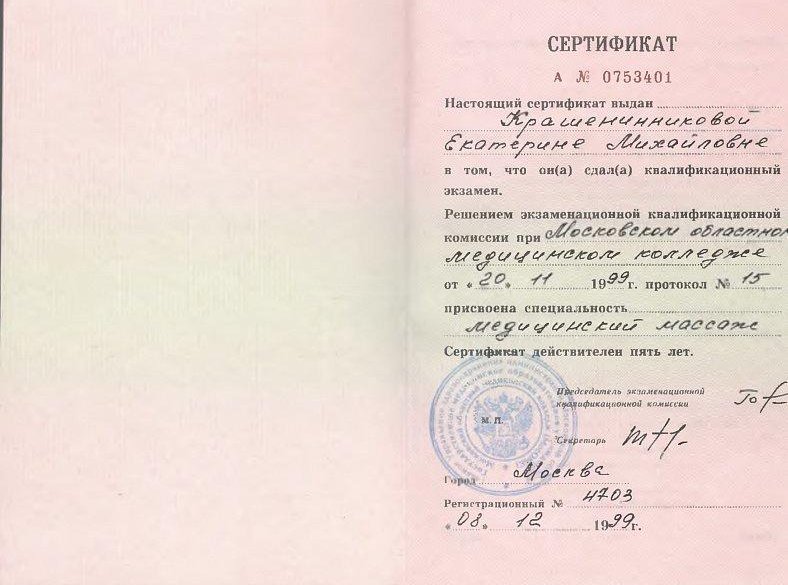 СЕРТИФИКАТ
А № 0753401
Настоящий сертификат выдан
Крашенинниковой
Екатерине Михайловне
в том, что он(а) сдал(а) квалификационный
экзамен.
Решением экзаменационной квалификационной
комиссии при Московском областном
медицинском колледже
от «20» 11 1999г. протокол № 15
присвоена специальность
медицинский массаж
Сертификат действителен пять лет.
Председатель экзаменационной
квалификационной комиссии
М.П.
Секретарь
Город Москва
Регистрационный № 4703
«08» 12 1999г.